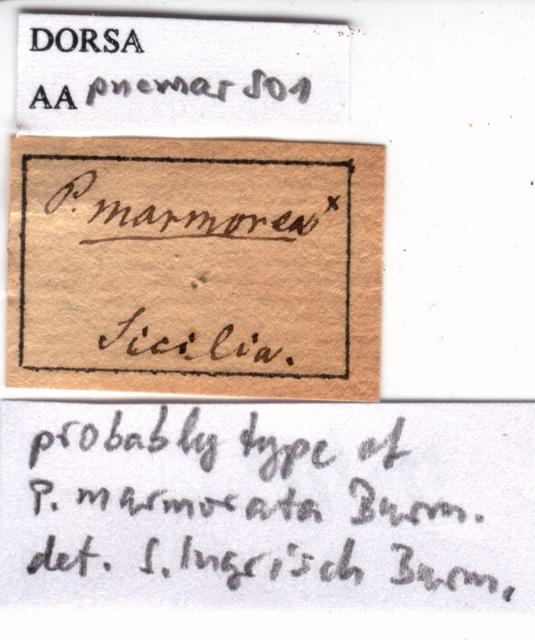 DORSA
AA pnemar S01
P. marmorea x
Sicilia.
probably type of
P. marmorata Burm.
det. S. Ingrisch Burm.